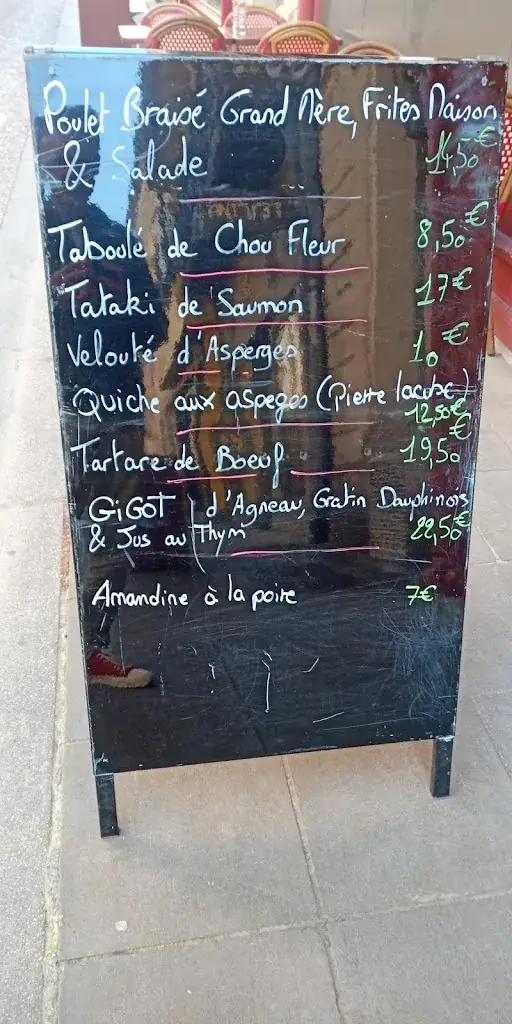 Poulet Braisé Grand Mère, Frites Maison
& Salade 14,50€
Taboulé de Chou Fleur 8,50€
Tataki de Saumon 17€
Velouté d'Asperges 10€
Quiche aux aspeges (Pierre lacose)
12,50€
Tartare de Boeuf 19,50€
GiGOT d'Agneau, Gratin Dauphinois
& Jus au Thym 22,50€
Amandine à la poire 7€